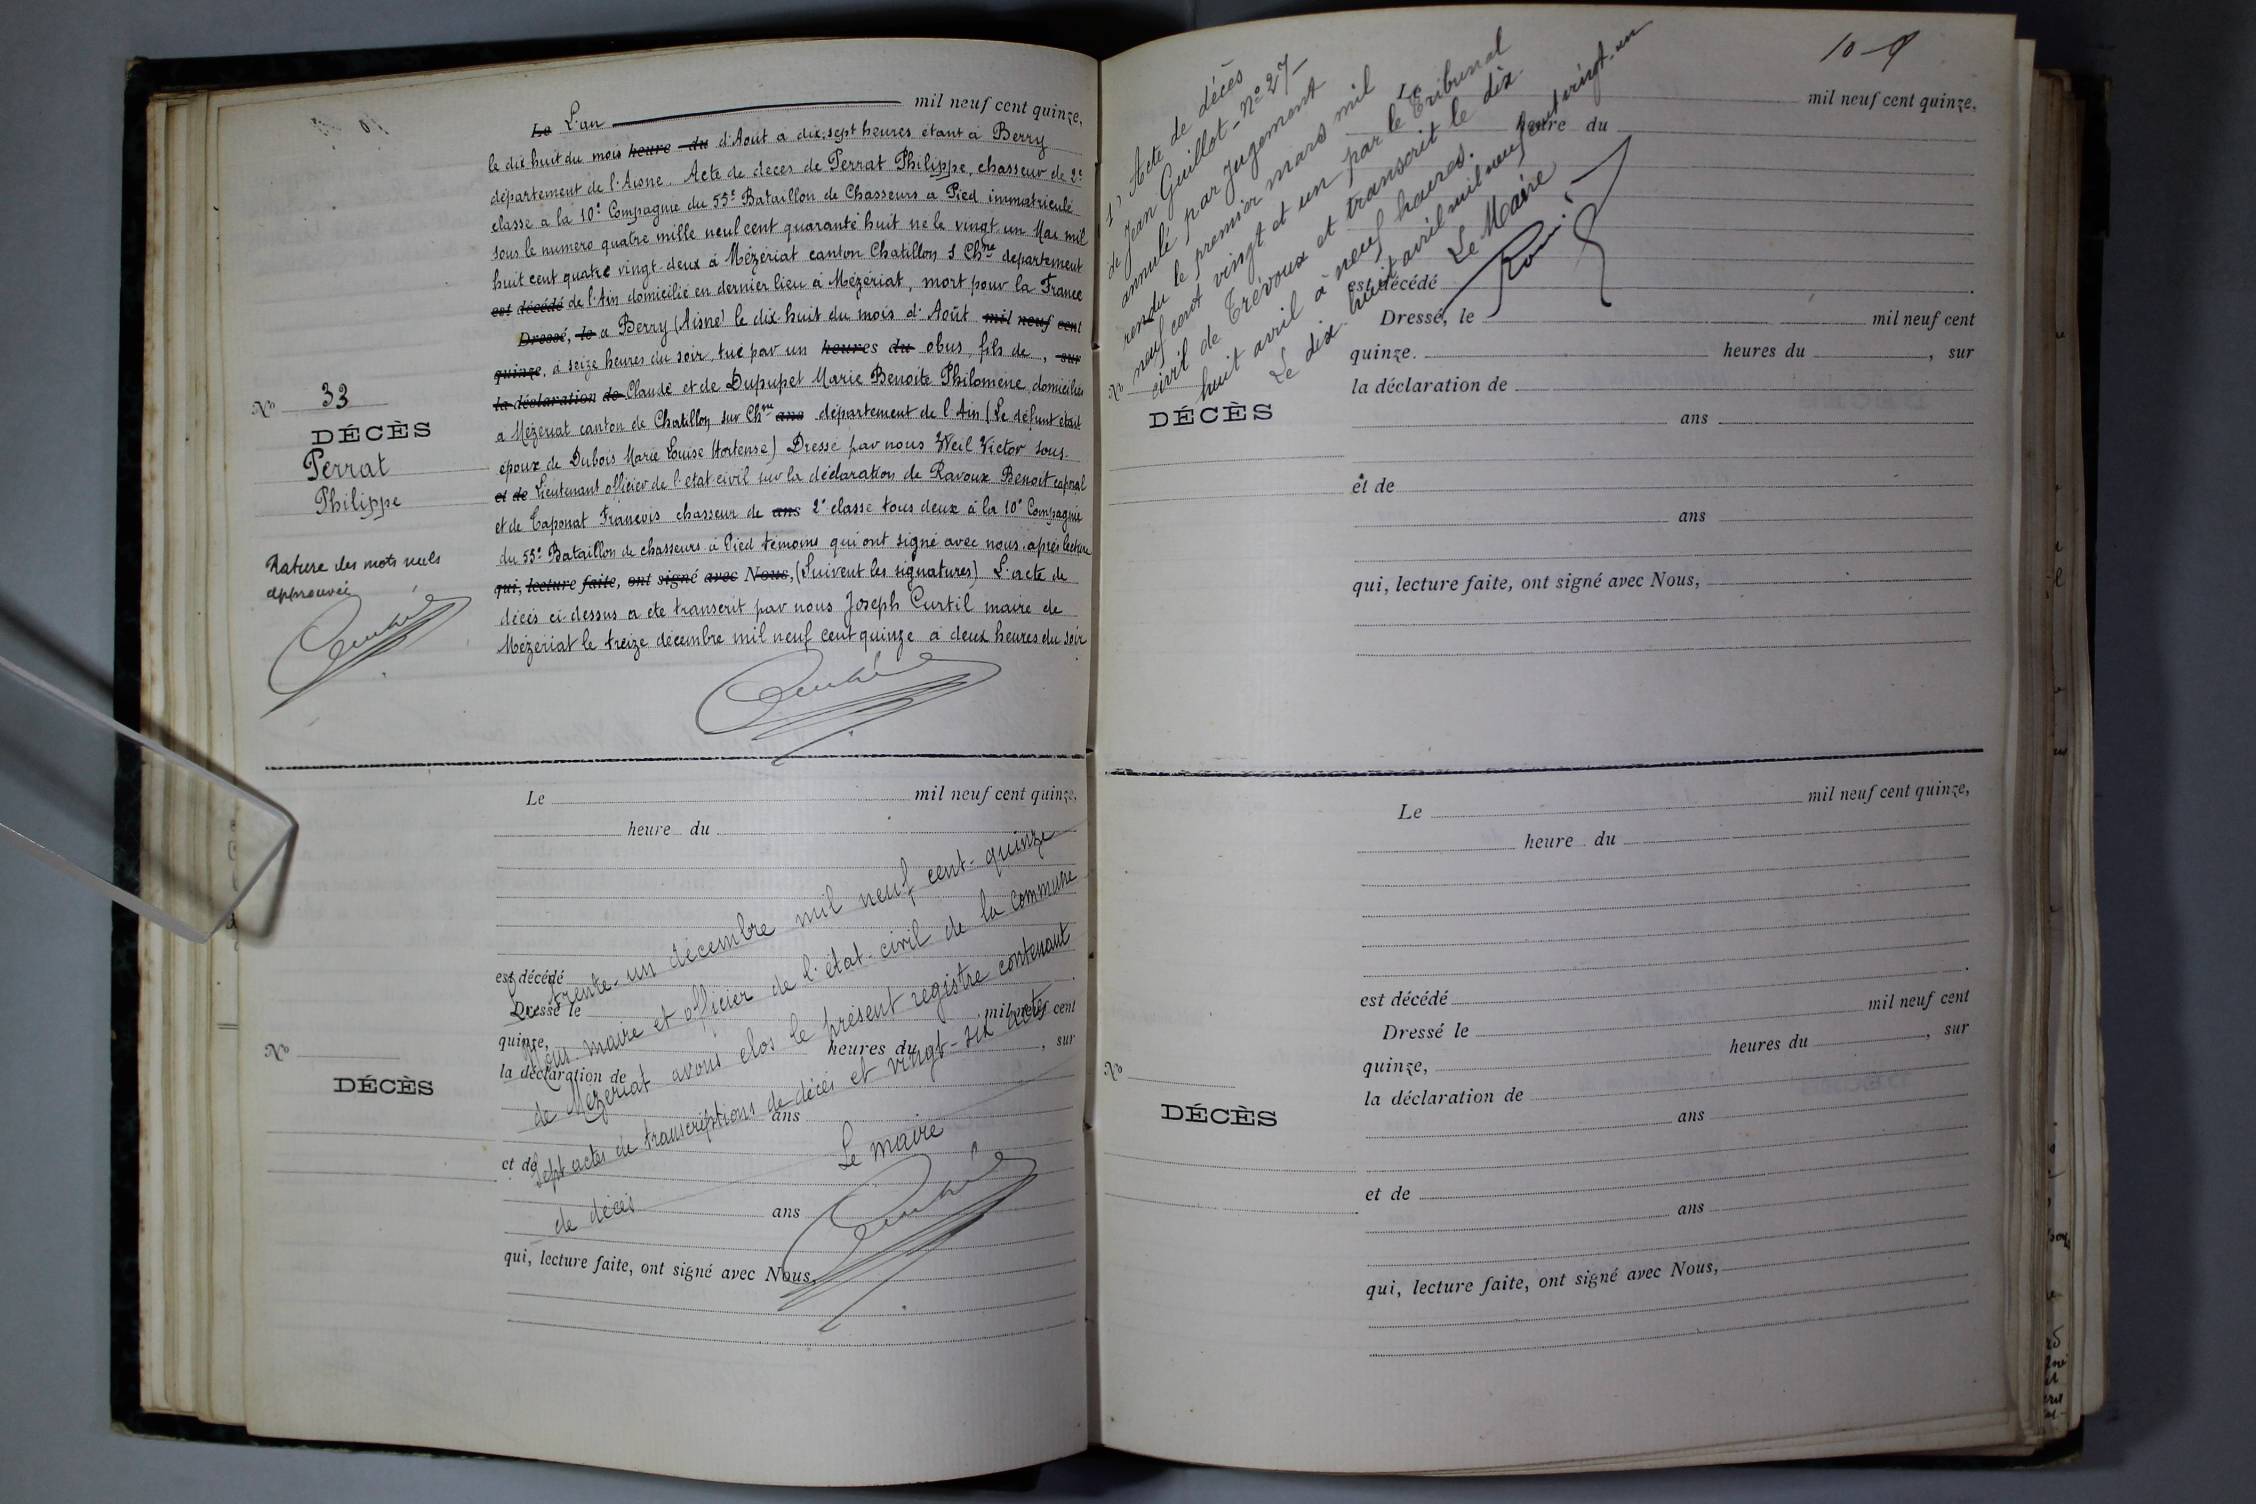 Le L'an mil neuf cent quinze,
le dix huit du mois heure du d'Août à dix-sept heures étant à Berry
département de l'Aisne. Acte de décès de Perrat Philippe, chasseur de 2e
classe à la 10e Compagnie du 55e Bataillon de Chasseurs à Pied immatriculé
sous le numéro quatre mille neuf cent quarante huit né le vingt-un Mai mil
huit cent quatre vingt-deux à Mézériat canton Chatillon s Chne département
est décédé de l'Ain domicilié en dernier lieu à Mézériat, mort pour la France
Dressé, le à Berry (Aisne) le dix-huit du mois d'Août mil neuf cent
quinze, à seize heures du soir, tué par un heures du obus, fils de, sur
la déclaration de Claude et de Dupupet Marie Benoite Philomène, domiciliés
à Mézériat canton de Chatillon sur Chne ans département de l'Ain (Le défunt était
époux de Dubois Marie Louise Hortense) Dressé par nous Weil Victor sous-
et de Lieutenant officier de l'état-civil sur la déclaration de Ravoux Benoit caporal
et de Taponat François chasseur de ans 2e classe tous deux à la 10e Compagnie
du 55e Bataillon de chasseurs à Pied témoins qui ont signé avec nous après lecture
qui, lecture faite, ont signé avec Nous, (Suivent les signatures) L'acte de
décès ci-dessus a été transcrit par nous Joseph Curtil maire de
Mézériat le treize décembre mil neuf cent quinze à deux heures du soir
No 33
DÉCÈS
Perrat
Philippe
Rature des mots nuls
approuvée
Le mil neuf cent quinze,
heure du
est décédé
Dressé le mil neuf cent
quinze, heures du , sur
la déclaration de
ans
et de
ans
qui, lecture faite, ont signé avec Nous,
No
DÉCÈS
Le trente-un décembre mil neuf cent-quinze
Nous maire et officier de l'état-civil de la commune
de Mézériat avons clos le présent registre contenant
sept actes de transcriptions de décès et vingt-six actes
de décès
Le maire
10
1) Acte de décès
de Jean Guillot - No 27 -
annulé par Jugement
rendu le premier mars mil
neuf cent vingt et un par le Tribunal
civil de Trévoux et transcrit le dix
huit avril à neuf heures.
Le dix-huit avril mil neuf cent vingt-un
Le Maire
Le mil neuf cent quinze,
heure du
est décédé
Dressé, le mil neuf cent
quinze. heures du , sur
la déclaration de
ans
et de
ans
qui, lecture faite, ont signé avec Nous,
No
DÉCÈS
Le mil neuf cent quinze,
heure du
est décédé
Dressé le mil neuf cent
quinze, heures du , sur
la déclaration de
ans
et de
ans
qui, lecture faite, ont signé avec Nous,
No
DÉCÈS